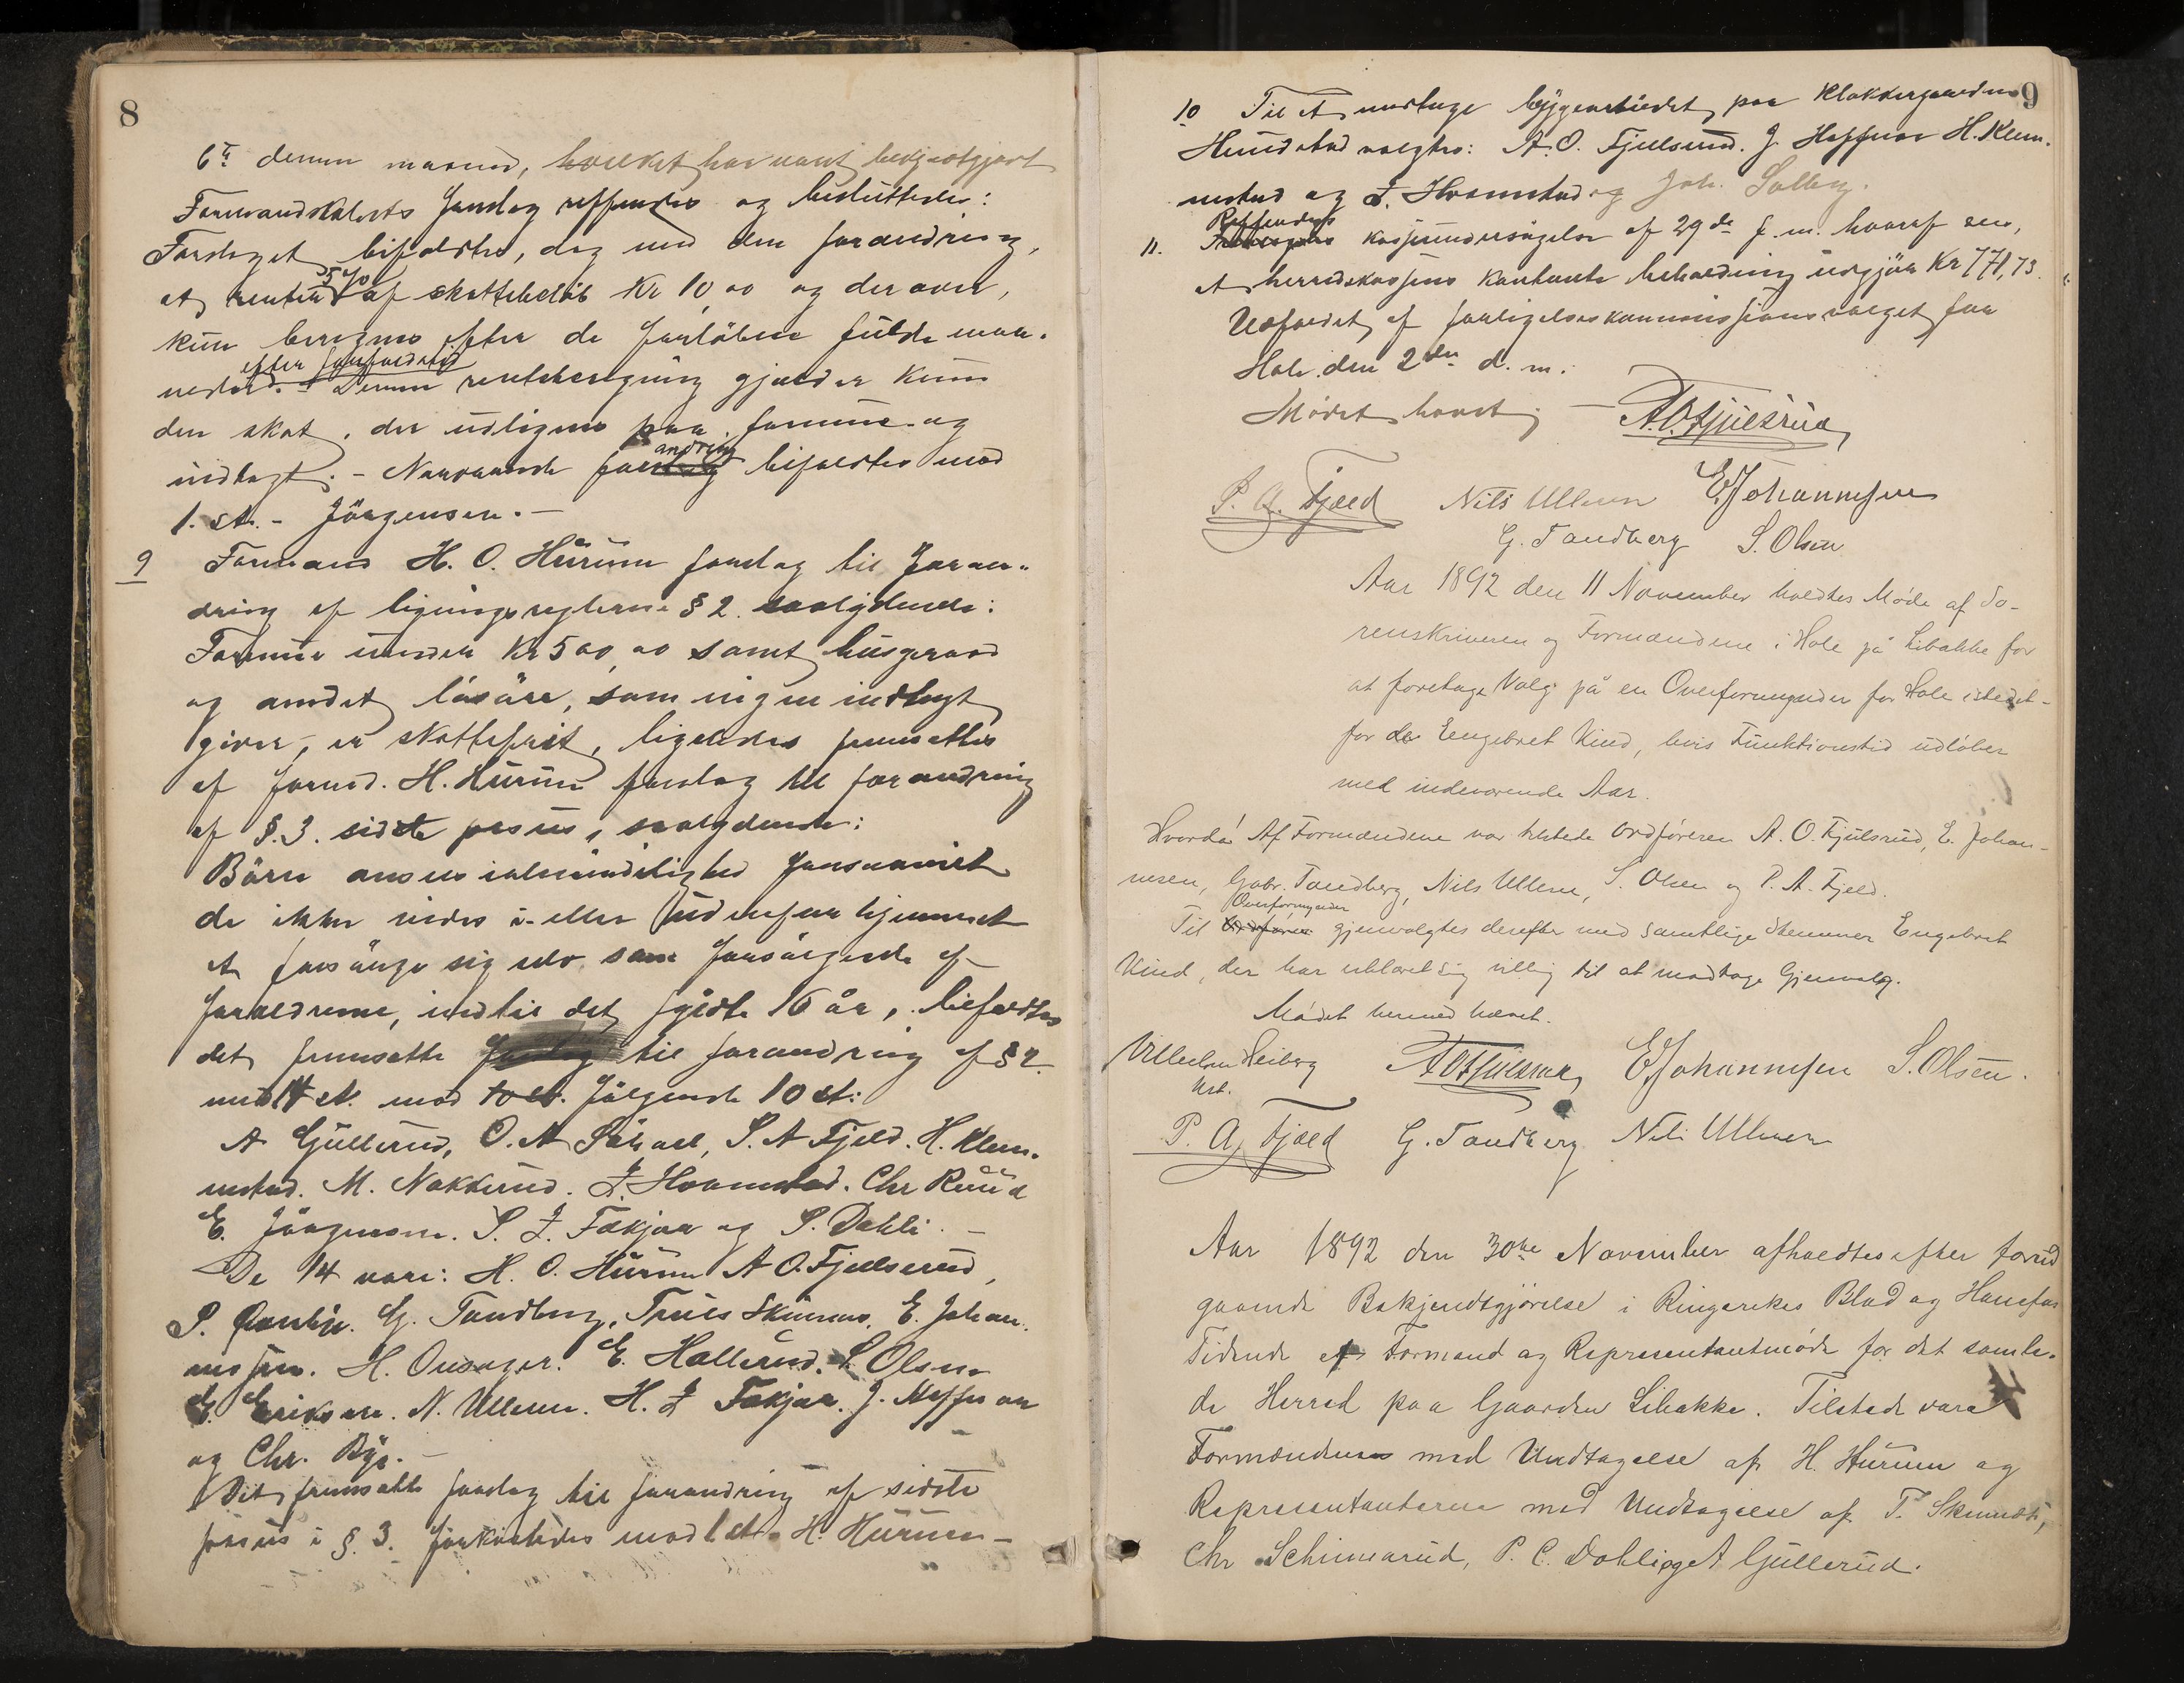 8
6te denne maaned, hvilket har vært bekjendtgjort
Formandskabets forslag refferertes og besluttedes:
Forslaget bifaldtes, dog med den forandring,
at renten 5 % af skattebeløb Kr 10,00 og derover,
kun beregnes efter de forløbne fulde maa-
neder efter forfaldstid. - Denne renteberegning gjælder kun
den skat, der udlignes paa formue og
indtægt. - Nærværende forandring bifaldtes mod
1 st. - Jörgensen. -
9 Formand H. O. Hürum forslag til foran-
dring af ligningsreglerne § 2 saalydende:
Formue under Kr 500,00 samt husgeraad
og andet lösöre, som ingen indtægt
giver, er skattefrit, ligeledes fremsattes
af formd. H. Hürum forslag til forandring
af § 3. sidste passus, saalydende:
Börn ansees i almindelighed forsaavidt
de ikke vides i eller udenfor hjemmet
at forsörge sig selv som forsörgede af
forældrene, indtil det fyldte 16 år, bifaldtes
det fremsatte forslag til forandring af § 2
med 14 st. mod 10 st. fölgende 10 st:
A Gjüllerud, O. A Sörsdal, P. A Fjeld. H. Klem-
metsud. M. Nakkerud. L. Hvamstad. Chr Rüüd
E. Jörgensen. S. L. Fækjær og P. Dehli. -
De 14 vare: H. O. Hürum A O. Fjeldserud,
P. G. Tandberg, Truls Skinnes, E. Johan-
nessen. H. Onsager. E. Hallerud. S Olsen
E. Eriksen. N. Ullern. H. L Fækjær. J. Moffssen
og Chr. By. -
Det fremsatte forslag til forandring af sidste
passus i § 3. forkastedes mod 1 st. H. Hürum -
9
10 Til at modtage byggearbeidet paa Klokkergaarden
Hundstad valgtes: A. O. Fjeldsrud. J. H. Klem-
metsud og L. Hvamstad og Joh. Solberg.
11. Refferertes kasseundersögelse af 29de f. m. hvoraf sees,
at herredskassens kontante beholdning udgjör Kr 771,73.
Udfaldet af forligelseskommissionsvalget for
Hole den 2den d. m.
Mödet hævet. - A. O. Fjeldsrud
P. A. Fjeld Nils Ullern E. Johannessen
G. Tandberg S. Olsen
Aar 1892 den 11 November holdtes Møde af So-
renskriveren og Formændene i Hole på Libakke for
at foretage Valg på en Overformynder for Hole istedet-
for Engebret Viud, hvis Funktionstid udløber
med indeværende Aar.
Hvorda! Af Formændene var tilstede Ordføreren A. O. Fjulsrud, E. Johan-
nesen, Gabr. Tandberg, Nils Ullern, S. Olsen og P. A. Fjeld.
Overformynder
Til Ordfører gjenvalgtes derefter med samtlige Stemmer Engebret
Viud, der har erklæret sig villig til at modtage Gjenvalg.
Mødet hermed hævet.
Vilhelm Heiberg A O Fjeldsrud E. Johannessen S. Olsen.
kst.
P. A. Fjeld G. Tandberg Nils Ullern
Aar 1892 den 30te November afholdtes efter forud
gaaende Bekjendtgjørelse i Ringerikes Blad og Hønefos
Tidende et Formand og Representantmøde for det samle-
de Herred paa Gaarden Libakke. Tilstede vare
Formændene med Undtagelse af H. Hürum og
Representanterne med Undtagelse af T. Skinnæs,
Chr Schinnarud, P. C. Dahli og A Gjüllerüd.